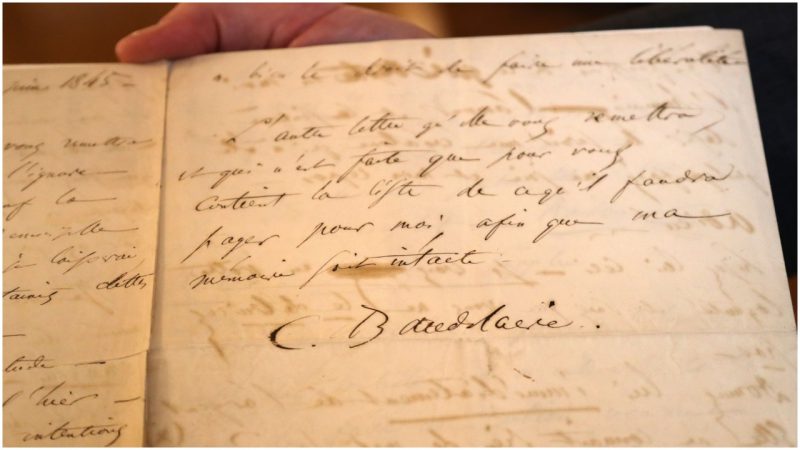 juin 1845 –
vous remettra
l'ignore
la
laisserai
dettes
l'hier –
intentions
a bien le droit de faire une libéralité
L'autre lettre qu'elle vous remettra,
et qui n'est faite que pour vous
contient la liste de ce qu'il faudra
payer pour moi afin que ma
mémoire soit intacte –
C. Baudelaire.